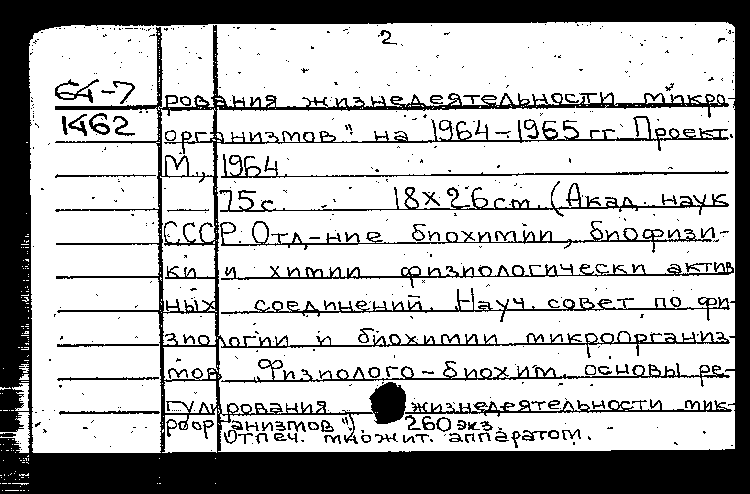 2
64-7
1462
рования жизнедеятельности микро-
организмов" на 1964-1965 гг. Проект.
М., 1964.
75 с. 18х26 см. (Акад. наук
СССР. Отд-ние биохимии, биофизи-
ки и химии физиологически актив
ных соединений. Науч. совет по фи-
зиологии и биохимии микроорганиз-
мов „Физиолого-биохим. основы ре-
гулирования жизнедеятельности мик-
роорганизмов"). 260 экз.
Отпеч. множит. аппаратом.